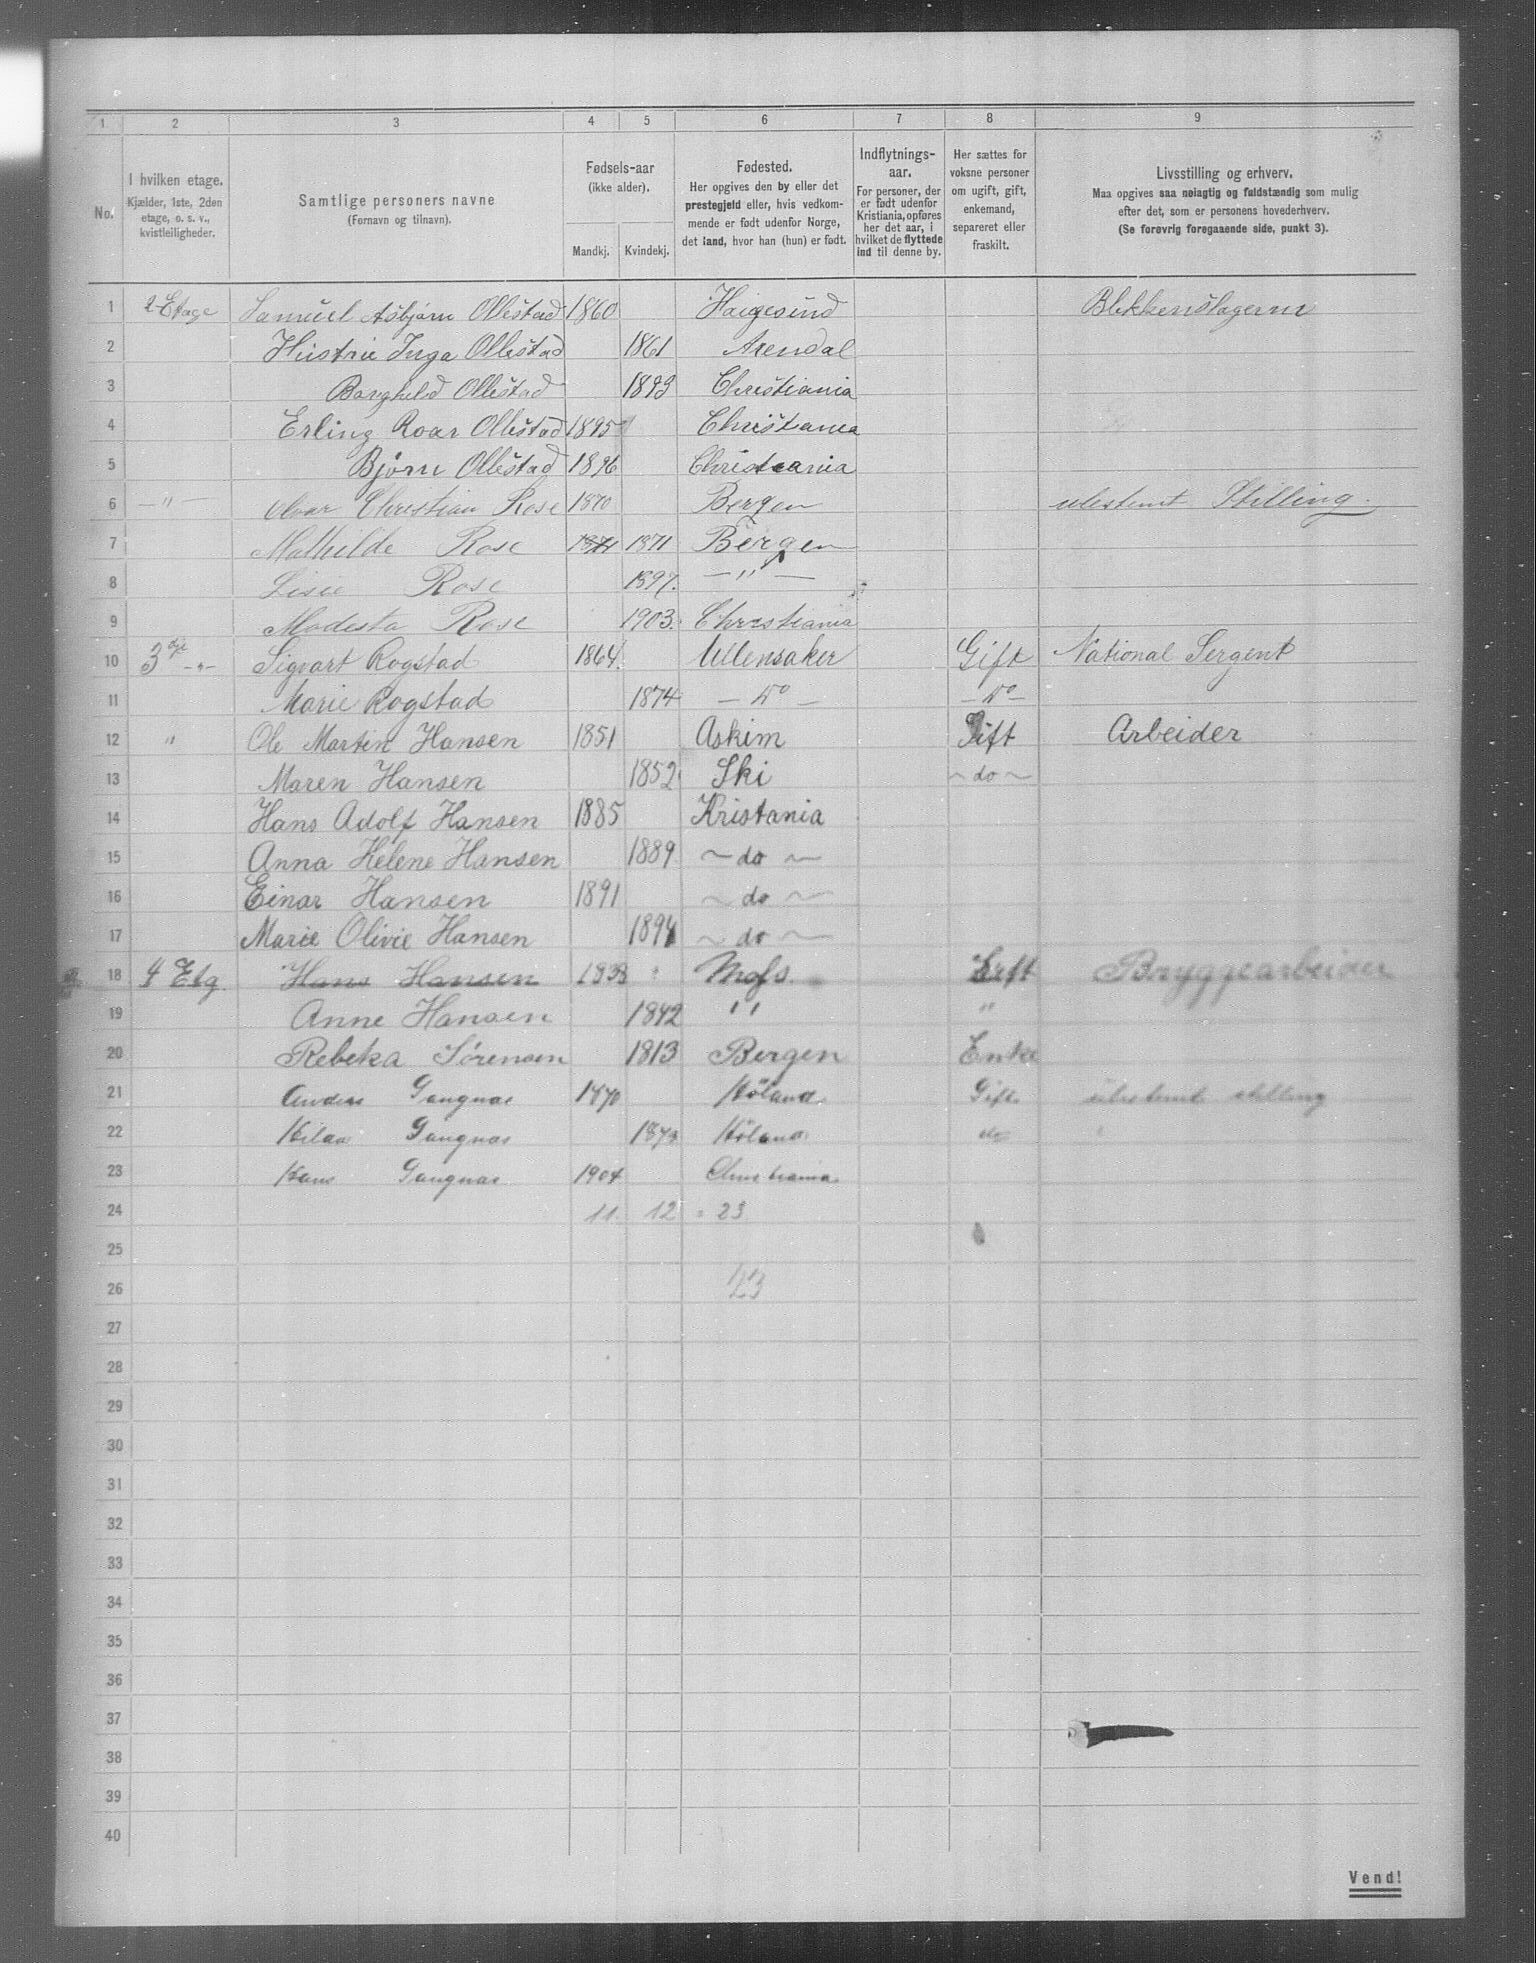 1 2 3 4 5 6 7 8 9
No.
I hvilken etage.
Kjælder, 1ste, 2den
etage, o. s. v.,
kvistleiligheder.
Samtlige personers navne
(Fornavn og tilnavn).
Fødsels-aar
(ikke alder).
Mandkj. Kvindekj.
Fødested.
Her opgives den by eller det
prestegjeld eller, hvis vedkom-
mende er født udenfor Norge,
det land, hvor han (hun) er født.
Indflytnings-
aar.
For personer, der
er født udenfor
Kristiania, opføres
her det aar, i
hvilket de flyttede
ind til denne by.
Her sættes for
voksne personer
om ugift, gift,
enkemand,
separeret eller
fraskilt.
Livsstilling og erhverv.
Maa opgives saa nøiagtig og fuldstændig som mulig
efter det, som er personens hovederhverv.
(Se forøvrig foregaaende side, punkt 3).
1 2-Etage Samuel Asbjørn Ollestad 1860 Haigesund Blikkenslagerm
2 Hustrue Inga Ollestad 1861 Arendal
3 Borghild Ollestad 1893 Christiania
4 Erling Roar Ollestad 1895 Christiania
5 Bjørn Ollestad 1896 Christiania
6 — " — Christian Rose 1870 Bergen ubestemt Stilling.
7 Mathilde Rose 1871 1871 Bergen
8 Lisie Rose 1897. — " —
9 Modesta Rose 1903. Christiania
10 3dje -"- Sigvart Rogstad 1864. Ullensaker Gift National Sergent
11 Marie Rogstad 1874 — Do — — Do —
12 " Ole Martin Hansen 1851 Askim Gift Arbeider
13 Maren Hansen 1852 Ski ~ do ~
14 Hans Adolf Hansen 1885 Kristania
15 Anna Helene Hansen 1889 ~ do ~
16 Einar Hansen 1891 ~ do ~
17 Marie Olivie Hansen 1894 ~ do ~
18 4 Etg. Hans Hansen 1838 Moss Gift Bryggearbeider
19 Anne Hansen 1842 " "
20 Rebeka Sørensen 1813 Bergen Enke
21 Anders Gangnæs 1870 Høland Gift ubestemt stilling
22 Gangnæs 1873 Høland do
23 Hans Gangnæs 1904 Christiania
24 11. 12 = 23
25
26 23
27
28
29
30
31
32
33
34
35
36
37
38
39
40
Vend!